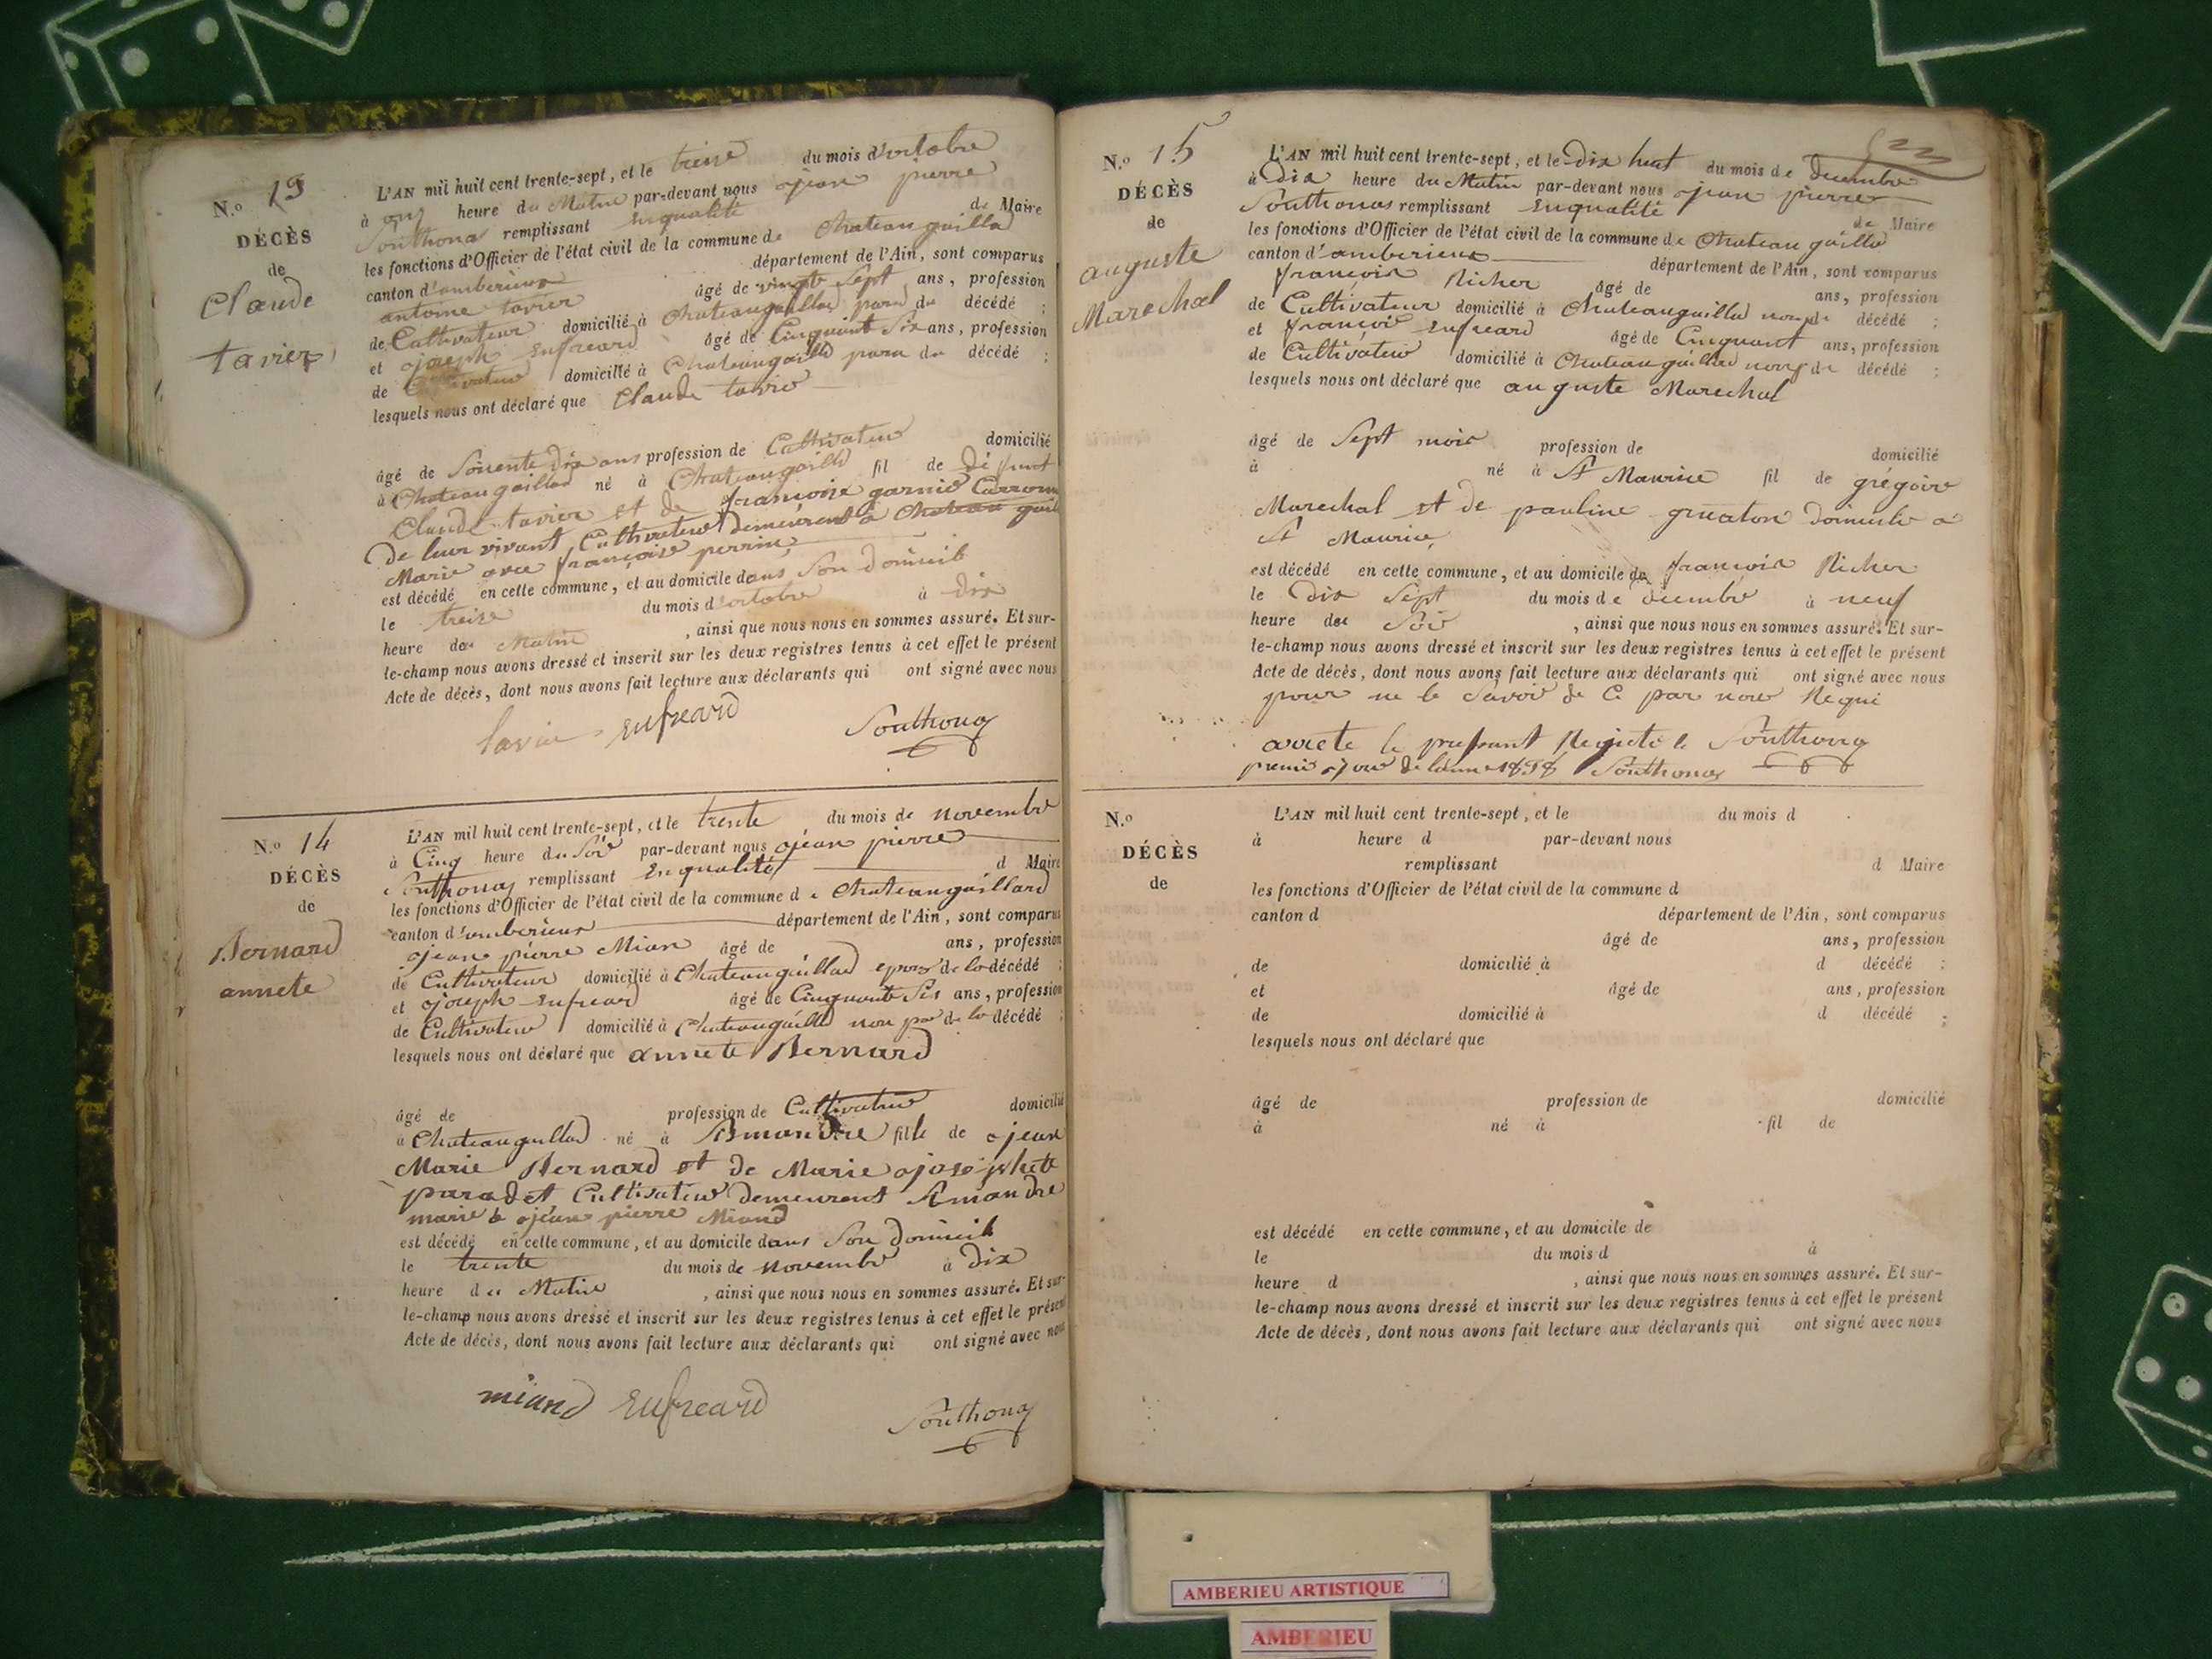 N.o 13
DÉCÈS
de
Claude
tavier
L'AN mil huit cent trente-sept, et le treise du mois d'octobre
à onz heure du Matin par-devant nous ojean pierre
Southonax remplissant enqualité de Maire
les fonctions d'Officier de l'état civil de la commune de Chateaugaillad
canton d'amberieux département de l'Ain, sont comparus
antoine tavier âgé de vingt Sept ans, profession
de Cultivateur domicilié à Chateaugaillad du décédé ;
et ojoseph Eufreard âgé de Cinquant Six ans, profession
de domicilié à Chateaugailld du décédé ;
lesquels nous ont déclaré que Claude tavier
âgé de Soisente dix ans profession de Cultivateur domicilié
à Chateaugaillad né à Chateaugailld fil de défunt
Claude tavier et de françoise garnié
de leur vivant Cultivateur demeurent à Chateau gail
Marie avec françoise perrin
est décédé en cette commune, et au domicile dans Son domicile
le treise du mois d'octobre à dix
heure du Matin , ainsi que nous nous en sommes assuré. Et sur-
le-champ nous avons dressé et inscrit sur les deux registres tenus à cet effet le présent
Acte de décès, dont nous avons fait lecture aux déclarants qui ont signé avec nous
tavier Eufreard Southonax
N.o 14
DÉCÈS
de
Bernard
annete
L'AN mil huit cent trente-sept, et le trente du mois de novembre
à Cinq heure du Soir par-devant nous ojean pierre
Southonax remplissant Enqualité d Maire
les fonctions d'Officier de l'état civil de la commune de Chateaugaillard
canton d'amberieux département de l'Ain, sont comparus
ojean pierre Mian âgé de ans, profession
de Cultivateur domicilié à Chateaugaillad epoux de la décédé ;
et ojoseph Eufreard âgé de Cinquante Six ans, profession
de Cultivateur domicilié à Chateaugailld non par de la décédé ;
lesquels nous ont déclaré que annete Bernard
âgé de profession de Cultivateur domicilié
à Chateaugaillad né à fille de ojean
Marie Bernard et de Marie ojosephete
paradet Cultivateur demeurent
marié à ojean pierre Miand
est décédé en cette commune, et au domicile dans Son domicile
le trente du mois de novembre à dix
heure du Matin , ainsi que nous nous en sommes assuré. Et sur-
le-champ nous avons dressé et inscrit sur les deux registres tenus à cet effet le présent
Acte de décès, dont nous avons fait lecture aux déclarants qui ont signé avec nous
miand Eufreard Southonax
N.o 15
DÉCÈS
de
auguste
Marechal
L'AN mil huit cent trente-sept, et le Dix huit du mois de decembre
à Dix heure du Matin par-devant nous ojean pierre
Southonax remplissant Enqualité de Maire
les fonctions d'Officier de l'état civil de la commune de Chateau gailld
canton d'amberieux département de l'Ain, sont comparus
françois Richer âgé de ans, profession
de Cultivateur domicilié à Chateaugaillad décédé ;
et françois Eufreard âgé de Cinquant ans, profession
de Cultivateur domicilié à Chateaugaillad décédé ;
lesquels nous ont déclaré que auguste Marechal
âgé de Sept mois profession de domicilié
à né à St Maurice fil de grégoire
Marechal et de pauline domicile a
St Maurice
est décédé en cette commune, et au domicile de françois Richer
le Dix Sept du mois de decembre à neuf
heure du Soir , ainsi que nous nous en sommes assuré. Et sur-
le-champ nous avons dressé et inscrit sur les deux registres tenus à cet effet le présent
Acte de décès, dont nous avons fait lecture aux déclarants qui ont signé avec nous
pour ne le Savoir de Ce par nous Requi
arrete le present Registe le Southonax
premie ojour de lanne 1838 Southonax
N.o
DÉCÈS
de
L'AN mil huit cent trente-sept, et le du mois d
à heure d par-devant nous
remplissant d Maire
les fonctions d'Officier de l'état civil de la commune d
canton d département de l'Ain, sont comparus
âgé de ans, profession
de domicilié à d décédé ;
et âgé de ans, profession
de domicilié à d décédé ;
lesquels nous ont déclaré que
âgé de profession de domicilié
à né à fil de
est décédé en cette commune, et au domicile de
le du mois d à
heure d , ainsi que nous nous en sommes assuré. Et sur-
le-champ nous avons dressé et inscrit sur les deux registres tenus à cet effet le présent
Acte de décès, dont nous avons fait lecture aux déclarants qui ont signé avec nous
AMBERIEU ARTISTIQUE
AMBERIEU